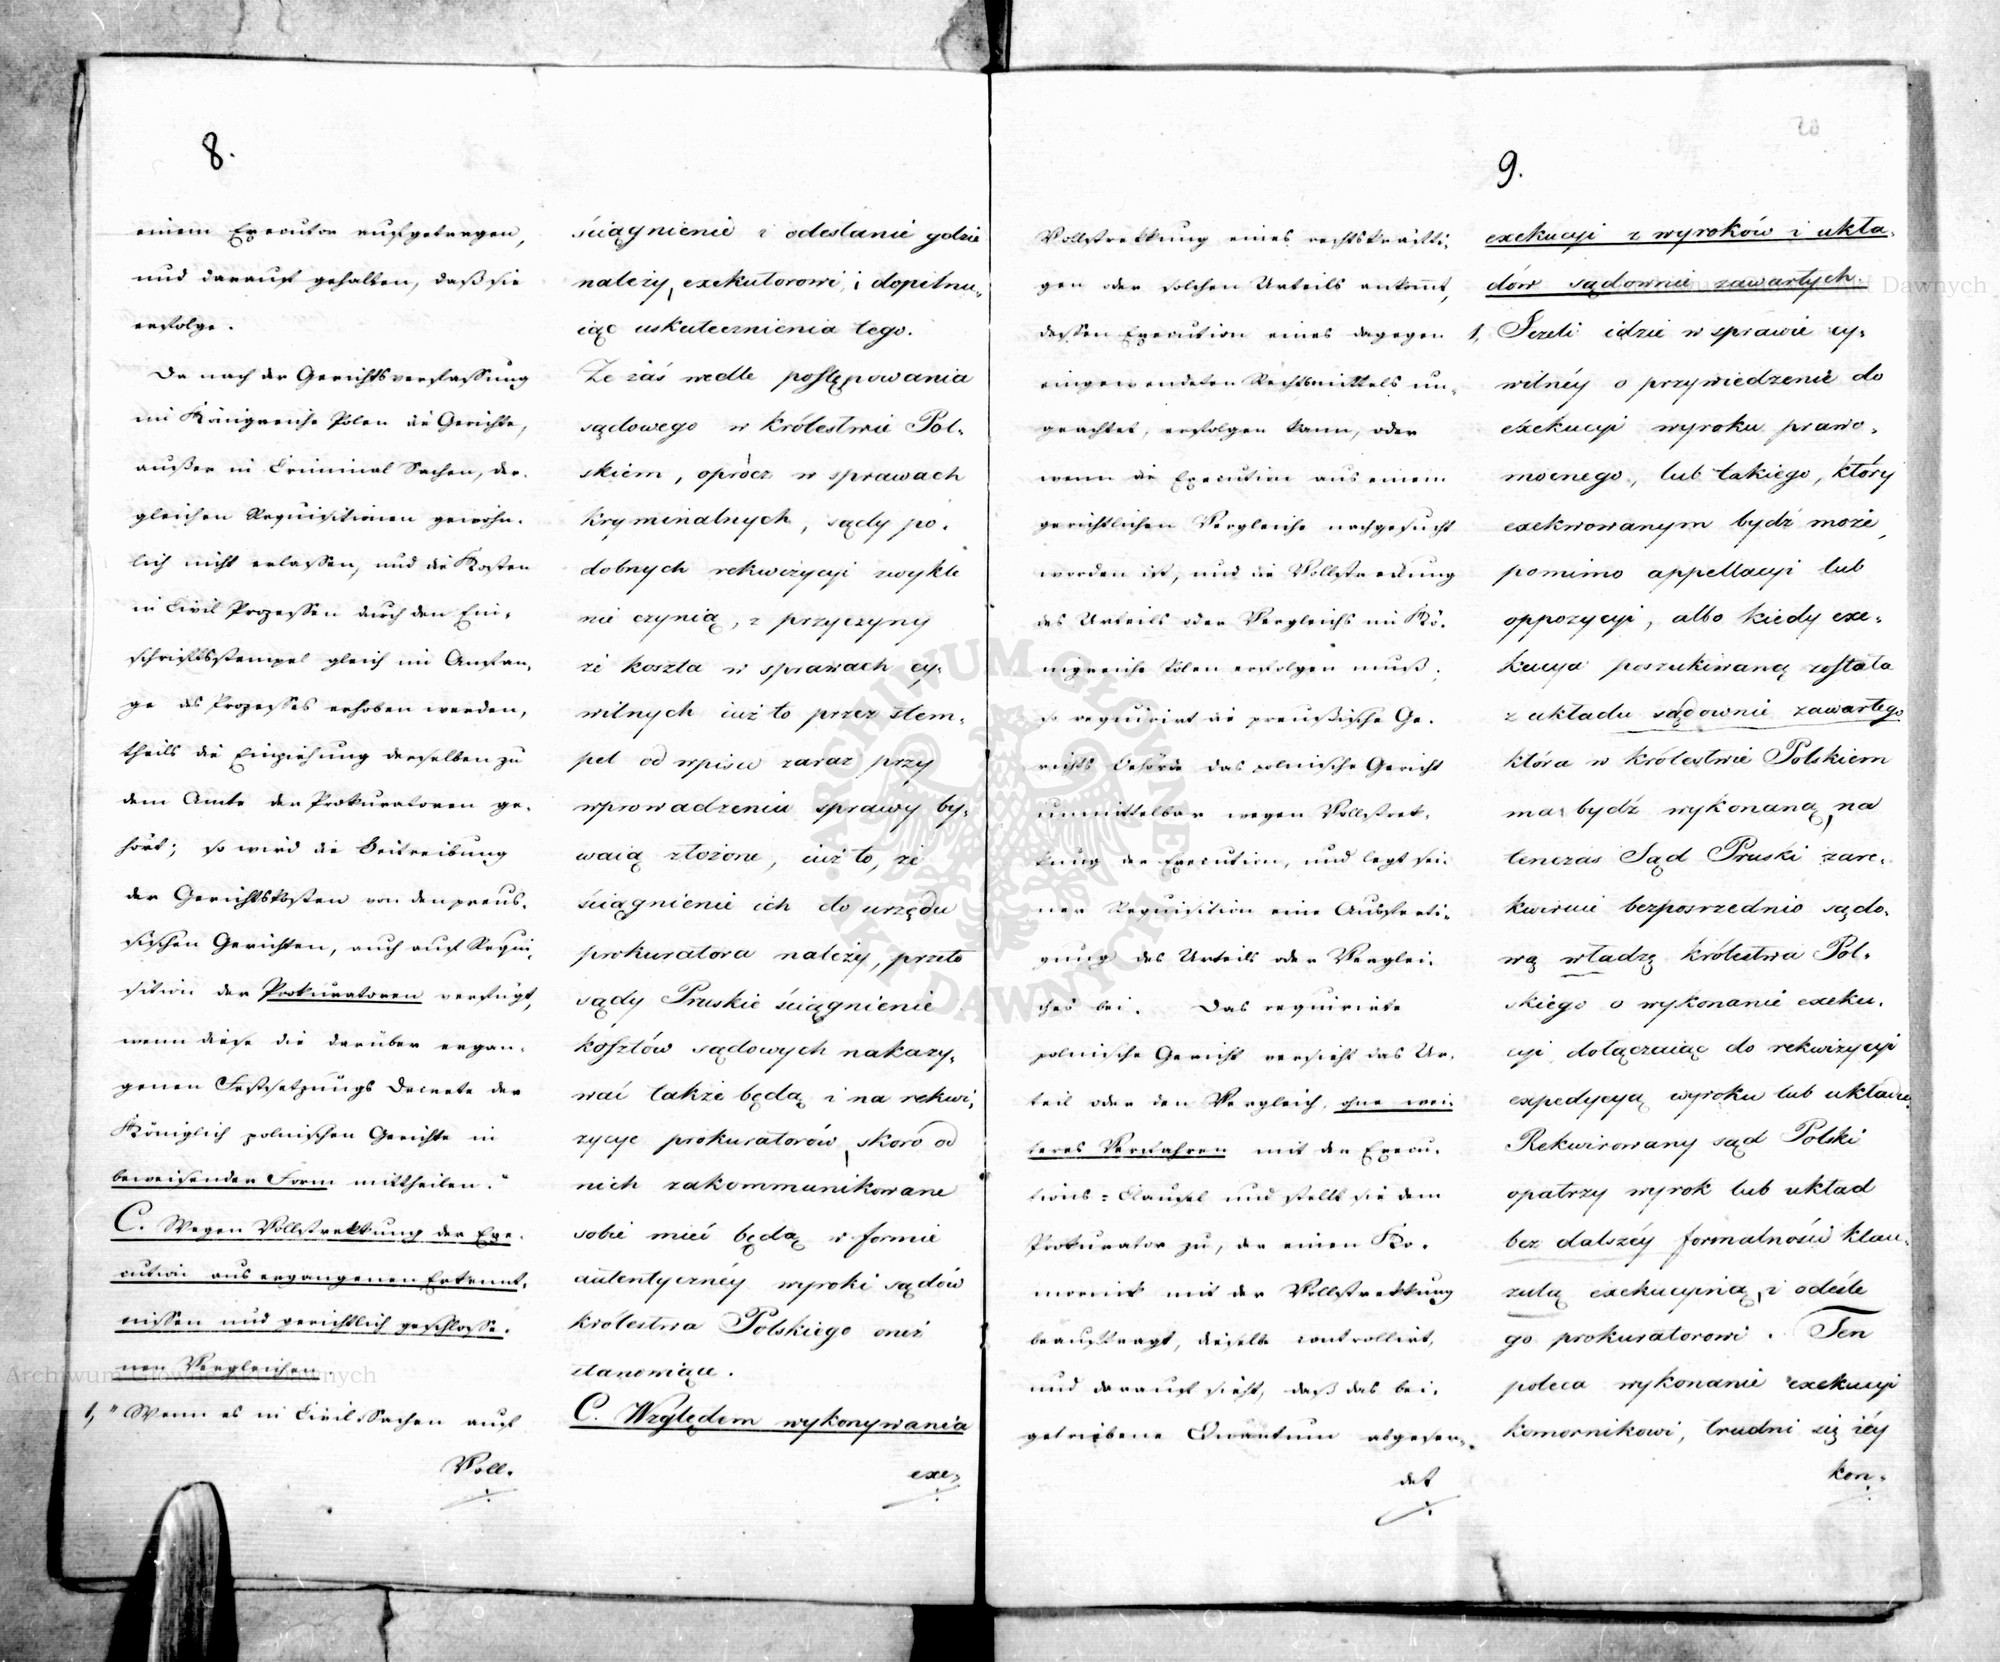 8.
einem Executor aufgetragen,
und darauf gehalten, daß sie
erfolge.
Da nach der Gerichtsverfassung
im Königreiche Polen die Gerichte,
außer in Criminal Sachen, der-
gleichen Requisitionen gewöhn-
lich nicht erlassen, und die Kosten
in Civil Prozessen durch den Ein-
schriftsstempel gleich im Anfan-
ge des Prozesses erhoben werden,
theils die Einziehung derselben zu
dem Amte der Prokuratoren ge-
hört; so wird die Beitreibung
der Gerichtskosten von den preus-
sischen Gerichten, auch auf Requi-
sition der Prokuratoren verfügt,
wenn diese die darüber ergan-
genen Festsetzungs Decrete der
Königlich polnischen Gerichte in
beweisender Form mittheilen."
C. Wegen Vollstrekkung der Exe-
cution aus ergangenen Erkennt-
nissen und gerichtlich geschlosse-
nen Vergleichen.
1, " Wenn es in Civil-Sachen auf
Voll-
ściągnienie i odesłanie gdzie
należy, exekutorowi, i dopilnu-
iąc uskutecznienia tego.
Że zaś wedle postępowania
sądowego w królestwie Pol-
skiem, oprócz w sprawach
kryminalnych, sądy po-
dobnych rekwizycyi zwykle
nie czynią, z przyczyny
że koszta w sprawach cy-
wilnych iuż to przez stem-
pel od wpisu zaraz przy
wprowadzeniu sprawy by-
waią złożone, iuż to, że
ściągnienie ich do urzędu
prokuratora należy, przeto
sądy Pruskie ściągnienie
kosztów sądowych nakazy-
wać także będą i na rekwi-
zycye prokuratorów, skoro od
nich zakommunikowane
sobie mieć będą w formie
autentycznéy wyroki sądów
królestwa Polskiego oneż
stanowiące.
C. Względem wykonywania
exe-
9.
Vollstrekkung eines rechtskräfti-
gen oder solchen Urteils ankommt,
dessen Execution eines dagegen
eingewendeten Rechtsmittels un-
geachtet, erfolgen kann, oder
wenn die Execution aus einem
gerichtlichen Vergleiche nachgesucht
worden ist, und die Vollstreckung
des Urteils oder Vergleichs im Kö-
nigreiche Polen erfolgen muß;
so requirirt die preußische Ge-
richts Behörde das polnische Gericht
unmittelbar wegen Vollstrek-
kung der Execution, und legt sei-
ner Requisition eine Ausferti-
gung des Urteils oder Verglei-
ches bei. Das requirirte
polnische Gericht versieht das Ur-
teil oder den Vergleich, ohne wei-
teres Verfahren mit der Execu-
tions-Clausel und stellt sie dem
Prokurator zu, der einen Ko-
mornik mit der Vollstrekkung
beauftragt, dieselbe controllirt,
und darauf sieht, daß das bei-
getriebene Quantum abgesen-
det
exekucyi z wyroków i ukła-
dów sądownie zawartych.
1, Jeżeli idzie w sprawie cy-
wilnéy o przywiedzenie do
exekucyi wyroku prawo-
mocnego, lub takiego, który
exekwowanym bydź może,
pomimo appellacyi lub
oppozycyi, albo kiedy exe-
kucya poszukiwaną została
z układu sądownie zawartego
która w królestwie Polskiem
ma bydź wykonaną, na
tenczas Sąd Pruski zare-
kwiruie bezpośrzednio sądo-
wą władzę królestwa Pol-
skiego o wykonanie exeku-
cyi dołączaiąc do rekwizycyi
expedycyą wyroku lub układu.
Rekwirowany sąd Polski
opatrzy wyrok lub układ
bez dalszéy formalności klau-
zulą exekucyiną, i odeśle
go prokuratorowi. Ten
poleca wykonanie exekucyi
komornikowi, trudni się iéy
kon-
ARCHIWUM GŁÓWNE AKT DAWNYCH
Archiwum Główne Akt Dawnych